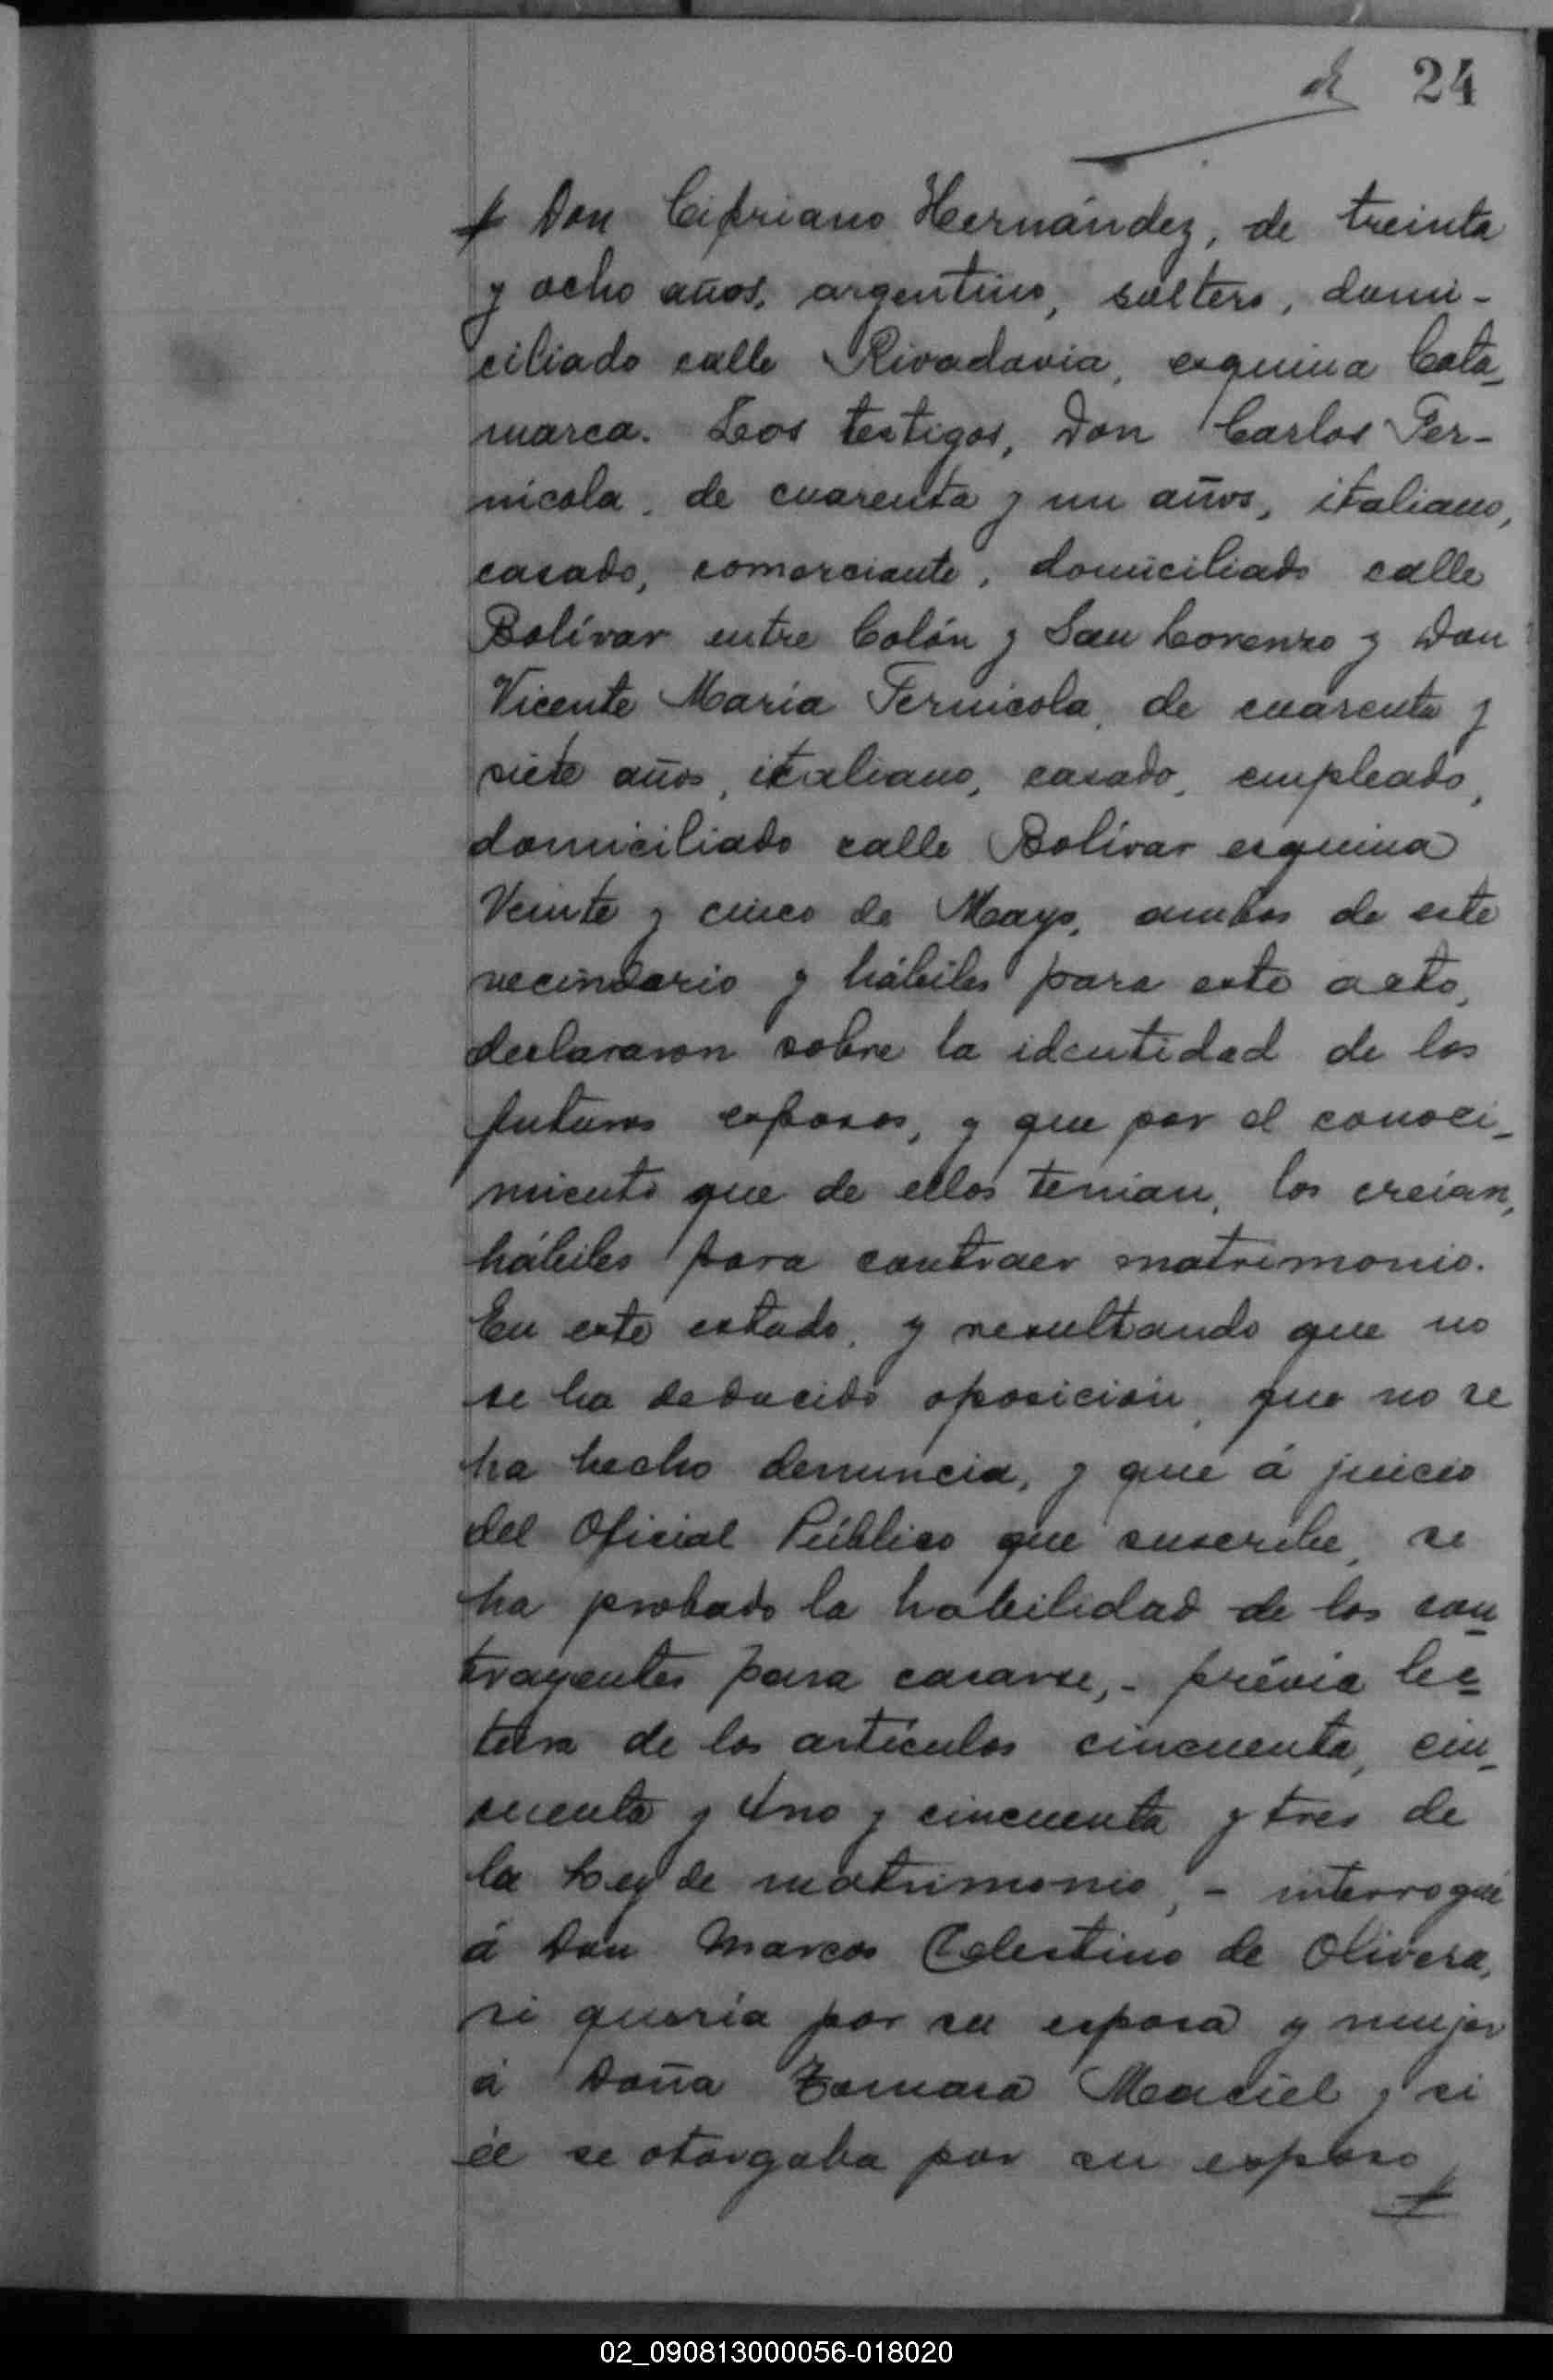 24
Don Cipriano Hernández, de treinta
y ocho años, argentino, soltero, domi-
ciliado calle Rivadavia, esquina Cata-
marca. Los testigos, Don Carlos Per-
nicola, de cuarenta y un años, italiano,
casado, comerciante, domiciliado calle
Bolívar entre Colón y San Lorenzo y Don
Vicente María Pernicola, de cuarenta y
siete años, italiano, casado, empleado,
domiciliado calle Bolívar esquina
Veinte y cinco de Mayo, ambos de este
vecindario y hábiles para este acto,
declararon sobre la identidad de los
futuros esposos, y que por el conoci-
miento que de ellos tenían, los creían,
hábiles para contraer matrimonio.
En este estado, y resultando que no
se ha deducido oposición, que no se
ha hecho denuncia, y que á juicio
del Oficial Público que suscribe, se
ha probado la habilidad de los con-
trayentes para casarse,- prévia lec-
tura de los artículos cincuenta, cin-
cuenta y uno y cincuenta y tres de
la Ley de matrimonio,- interrogué
á Don Marcos Celestino de Olivera,
si quería por su esposa y mujer
á Doña Tomasa Maciel y si
él se otorgaba por su esposo
02_090813000056-018020